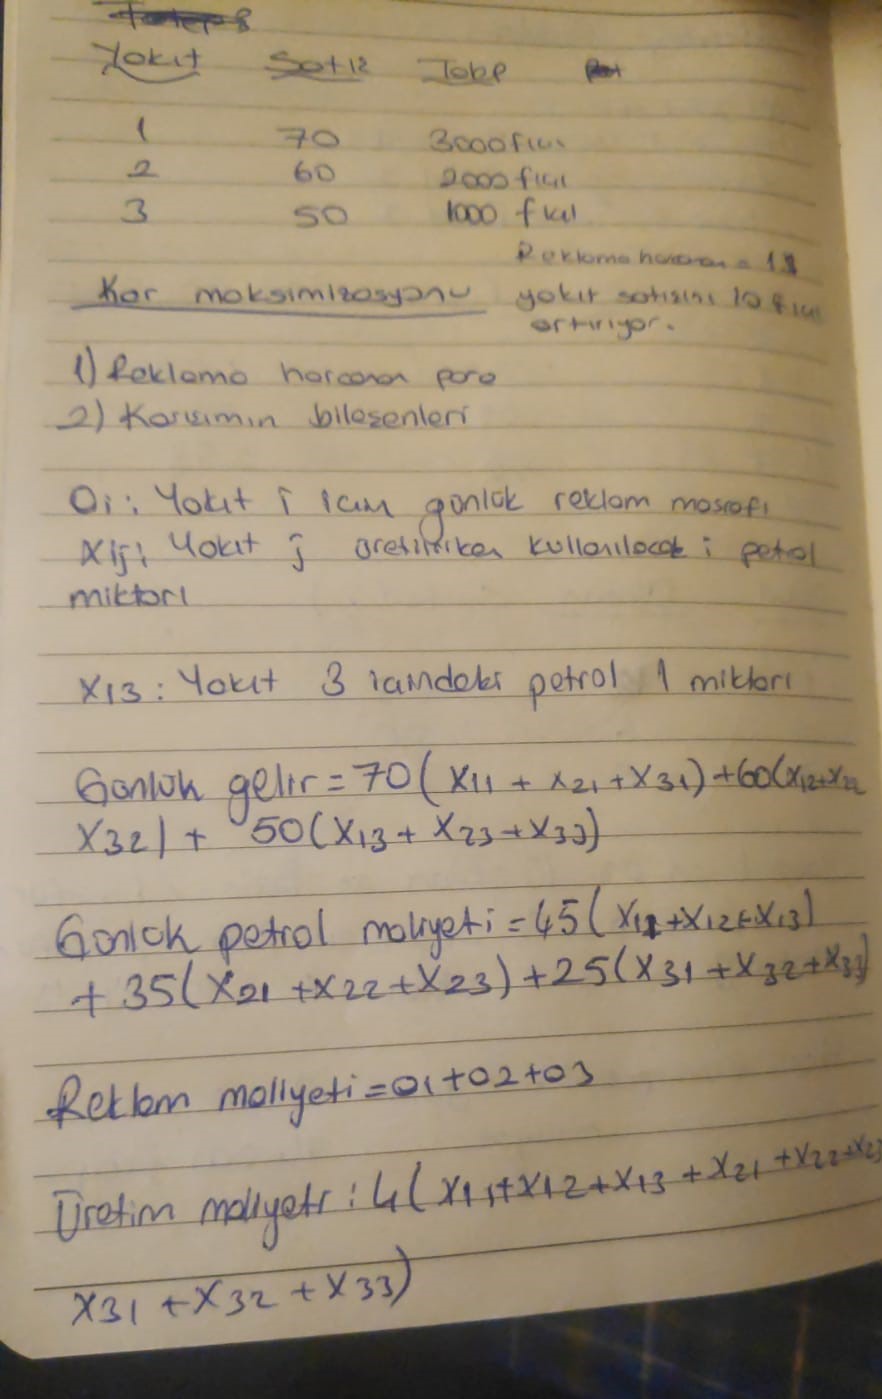 Yakıt Satız Talep
1 70 3000 fıçı
2 60 2000 fıçı
3 50 1000 fıçı
Reklama harcanan = 1$
Kar maksimizasyonu yakıt satışını 10 fıçı
artırıyor.
1) Reklama harcanan para
2) Karışımın bileşenleri
ai: Yakıt i için günlük reklam masrafı
Xij: Yakıt j üretilirken kullanılacak i petrol
miktarı
X13: Yakıt 3 içindeki petrol 1 miktarı
Günlük gelir = 70(X11 + X21 + X31) + 60(X12+X22
X32) + 50(X13 + X23 + X33)
Günlük petrol maliyeti = 45(X11+X12+X13)
+ 35(X21 +X22+X23) + 25(X31 +X32+X33)
Reklam maliyeti = a1+a2+a3
Üretim maliyeti: 4(X11+X12+X13 +X21 +X22+X23
X31 +X32 +X33)